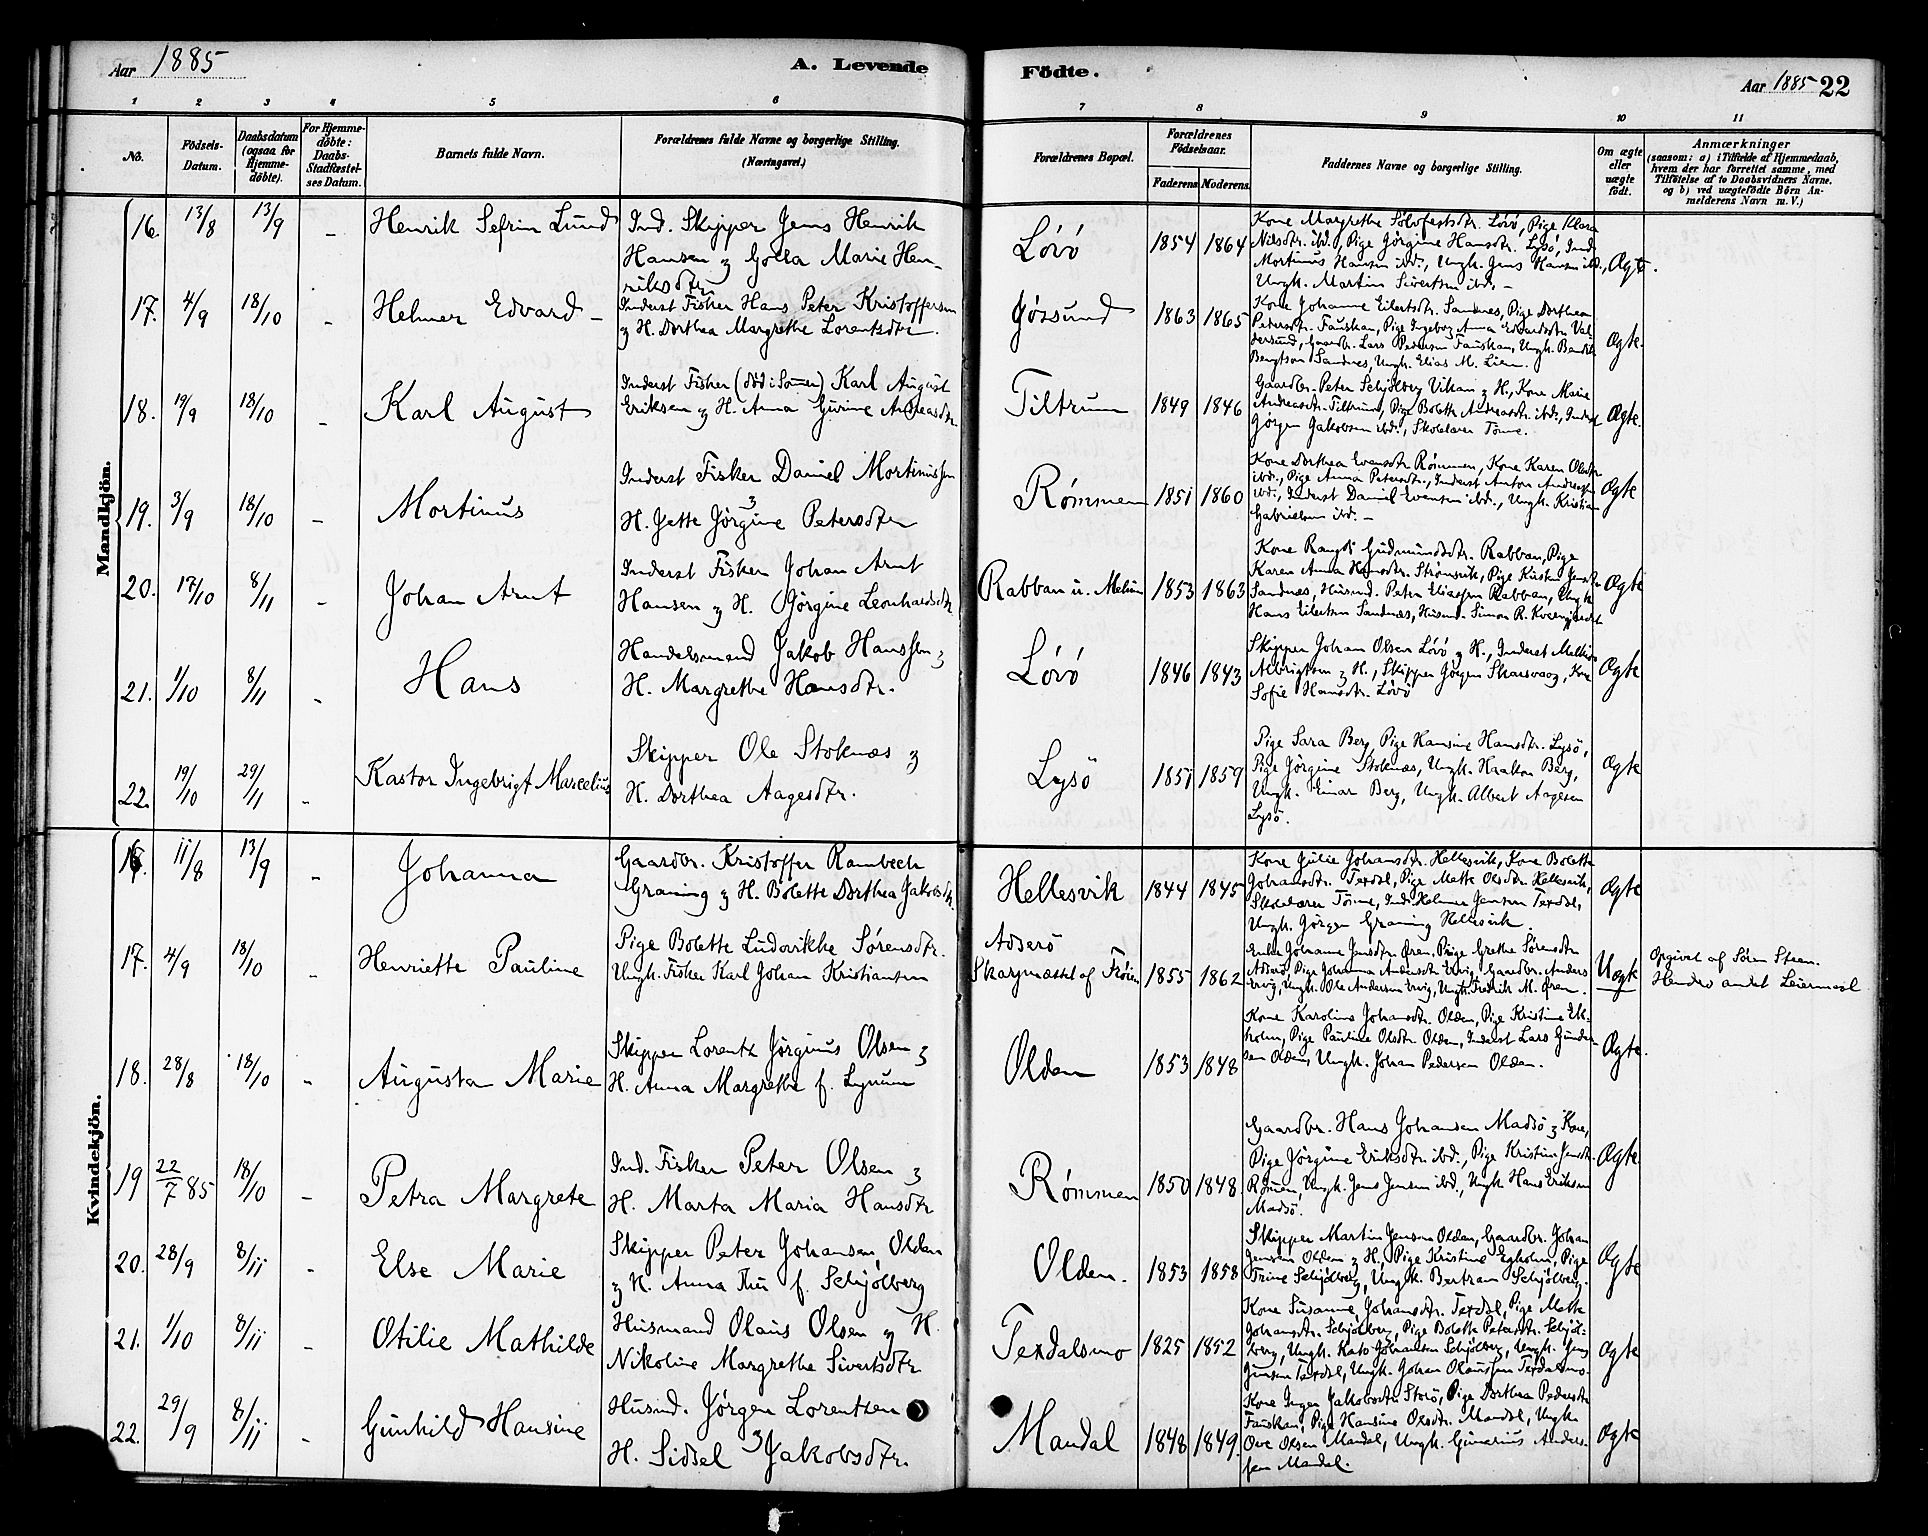 Aar 1885
A. Levende
Födte.
Aar 1885 22
1 2 3 4 5 6 7 8 9 10 11
No.
Födsels-
Datum.
Daabsdatum
(ogsaa for
Hjemme-
döbte).
For Hjemme-
döbte:
Daabs-
Stadfæstel-
ses Datum.
Barnets fulde Navn.
Forældrenes fulde Navne og borgerlige Stilling.
(Næringsvei.)
Forældrenes Bopæl.
Forældrenes
Födselsaar.
Faderens Moderens
Faddernes Navne og borgerlige Stilling.
Om ægte
eller
uægte
födt.
Anmærkninger
(saasom: a) i Tilfælde af Hjemmedaab,
hvem der har forrettet samme, med
Tilföielse af to Daabsvidners Navne,
og b) ved uægtefödte Börn An-
melderens Navn m. V.)
Mandkjön.
16. 13/8 13/9 - Henrik Sefrin Lund
Ind. Skipper Jens Henrik
Hansen & Golla Marie Hen-
riksdtr
Lövö 1854 1864
Kone Margrethe Sölvfestsdtr. Lövö, Pige Klara
Nilsdtr. ibd., Pige Jörgine Hansdtr. Lysö, Ind.
Mortinus Hansen ibd., Ungk. Jens Hansen ibd.,
Ungk. Martin Sivertsen ibd. -
Ægte.
17. 4/9 18/10 - Helmer Edvard -
Inderst Fisker Hans Peter Kristoffersen
& H. Dorthea Margrethe Lorentsdtr
Gjösund 1863 1865
Kone Johanne Eilertsdtr. Sandnes, Pige Dorthea
Petersdtr. Fauskan, Pige Ingeborg Anna Edvardsdtr Val-
dersund, Gaardb. Lars Pedersen Fauskan, Ungk. Bendik
Bengtson Sandnes, Ungk. Elias M. Lien.
Ægte.
18. 19/9 18/10 - Karl August
Inderst Fisker (död i Somer) Karl August
Eriksen & H. Anna Gurine Andreasdtr.
Tiltrum 1849 1846
Gaardbr. Peter Schjölberg Vikan & H., Kone Marie
Andreasdtr. Tiltrum, Pige Bolette Andreasdtr. ibd., Inderst
Jörgen Jakobsen ibd., Skolelærer Tönne.
Ægte.
19. 3/9 18/10 - Mortinus
Inderst Fisker Daniel Mortinussen
& H. Jette Jörgine Petersdtr
Römmen 1851 1860
Kone Dorthea Evensdtr Römmen, Kone Karen Olsdtr
ibd., Pige Anna Petersdtr., Inderst Anton Andreassen
ibd., Inderst Daniel Evensen ibd., Ungk. Kristian
Gabrielsen ibd. -
Ægte
20. 17/10 8/11 - Johan Arnt
Inderst Fisker Johan Arnt
Hansen & H. Jörgine Leonhardsdtr
Rabban u. Melum 1853 1863
Kone Rangdi Gudmundsdtr. Rabban, Pige
Karen Anna Hansdtr. Strömsvik, Pige Kirsten Jensdtr
Sandnæs, Husmd. Peter Eliassen Rabban, Ungk.
Hans Eilertsen Sandnæs, Husmd. Simon R. Kværngjerdet
Ægte
21. 1/10 8/11 - Hans
Handelsmand Jakob Hanssen &
H. Margrethe Hansdtr.
Lövö 1846 1843
Skipper Johan Olsen Lövö & H., Inderst Mathias
Albrigtsen & H., Skipper Jörgen Skarsvaag, Kone
Sofie Hansdtr. Lövö
Ægte
22. 19/10 29/11 - Kastor Ingebrigt Marcelius
Skipper Ole Stoknæs &
H. Dorthea Aagesdtr.
Lysö 1851 1859
Pige Sara Berg, Pige Hansine Hansdtr. Lysö,
Pige Jörgine Stoknæs, Ungk. Haakon Berg,
Ungk. Einar Berg, Ungk. Albert Aagesen
Lysö.
Ægte
Kvindekjön.
16. 11/8 13/9 - Johanna
Gaardbr. Kristoffer Rambech
Graning & H. Bolette Dorthea Jakobsdtr.
Hellesvik 1844 1845
Kone Julie Johansdtr. Hellesvik, Kone Bolette
Johansdtr. Texdal, Pige Mette Olsdtr. Hellesvik,
Skolelærer Tönne, Ind. Helmer Jensen Texdal,
Ungk. Jörgen Graning Hellesvik.
Ægte
17. 4/9 18/10 - Henriette Pauline
Pige Bolette Ludovikke Sörensdtr.
Ungk. Fisker Karl Johan Kristiansen
Asserö
Skarpnæsset af Fröien 1855 1862
Enke Johanne Jensdtr. Ören, Pige Grethe Sörensdtr
Asserö, Pige Johanna Andersdtr Ervig, Gaardbr. Anders
Ervig, Ungk. Ole Andersen Ervig, Ungk. Fredrik M. Ören.
Uægte
Opgivet af Sören Steen.
Hendes andet Leiermaal
18. 28/8 18/10 - Augusta Marie
Skipper Lorentz Jörginus Olsen &
H. Anna Margrethe f. Lynum
Olden 1853 1848
Kone Karoline Johansdtr. Olden, Pige Kristine Ek-
holm, Pige Pauline Olsdtr. Olden, Inderst Lars Gunder-
sen Olden, Ungk. Johan Pedersen Olden.
Ægte.
19 22/7 85 18/10 - Petra Margrete
Ind. Fisker Peter Olsen &
H. Marta Maria Hansdtr
Römmen 1850 1848.
Gaardbr. Hans Johansen Madsö & Kone,
Pige Jörgine Eriksdtr. ibd., Pige Kristin Jensdtr.
Römen, Ungk. Jens Jensen ibd., Ungk Hans Eriksen
Madsö.
Ægte.
20. 28/9 8/11 - Else Marie
Skipper Peter Johansen Olden
& H. Anna f. Schjölberg
Olden. 1853 1858
Skipper Martin Jensen Olden, Gaardbr. Johan
Jensen Olden & H., Pige Kristine Egholm, Pige
Trine Schjölberg, Ungk. Bertram Schjölberg.
Ægte
21. 1/10 8/11 - Otilie Mathilde
Husmand Olaus Olsen & H.
Nikoline Margrethe Sivertsdtr
Texdalsmo 1825 1852
Kone Susanne Johansdtr. Texdal, Pige Mette
Johansdtr. Schjölberg, Pige Bolette Petersdtr. Schjöl-
berg, Ungk. Kato Johansen Schjölberg, Ungk. Jens
Jensen Texdal, Ungk. Johan Olaussen Texdalsmo.
Ægte
22. 29/9 8/11 - Gunhild Hansine
Husmd. Jörgen Lorentsen
& H. Sidsel Jakobsdtr.
Mandal 1848 1849.
Kone Inger Jakobsdtr Storö, Pige Dorthea Pedersdtr
Fauskan, Pige Hansine Olsdtr. Mandal, Ungk.
Ove Olsen Mandal, Ungk. Gunerius Anders-
sen Mandal.
Ægte